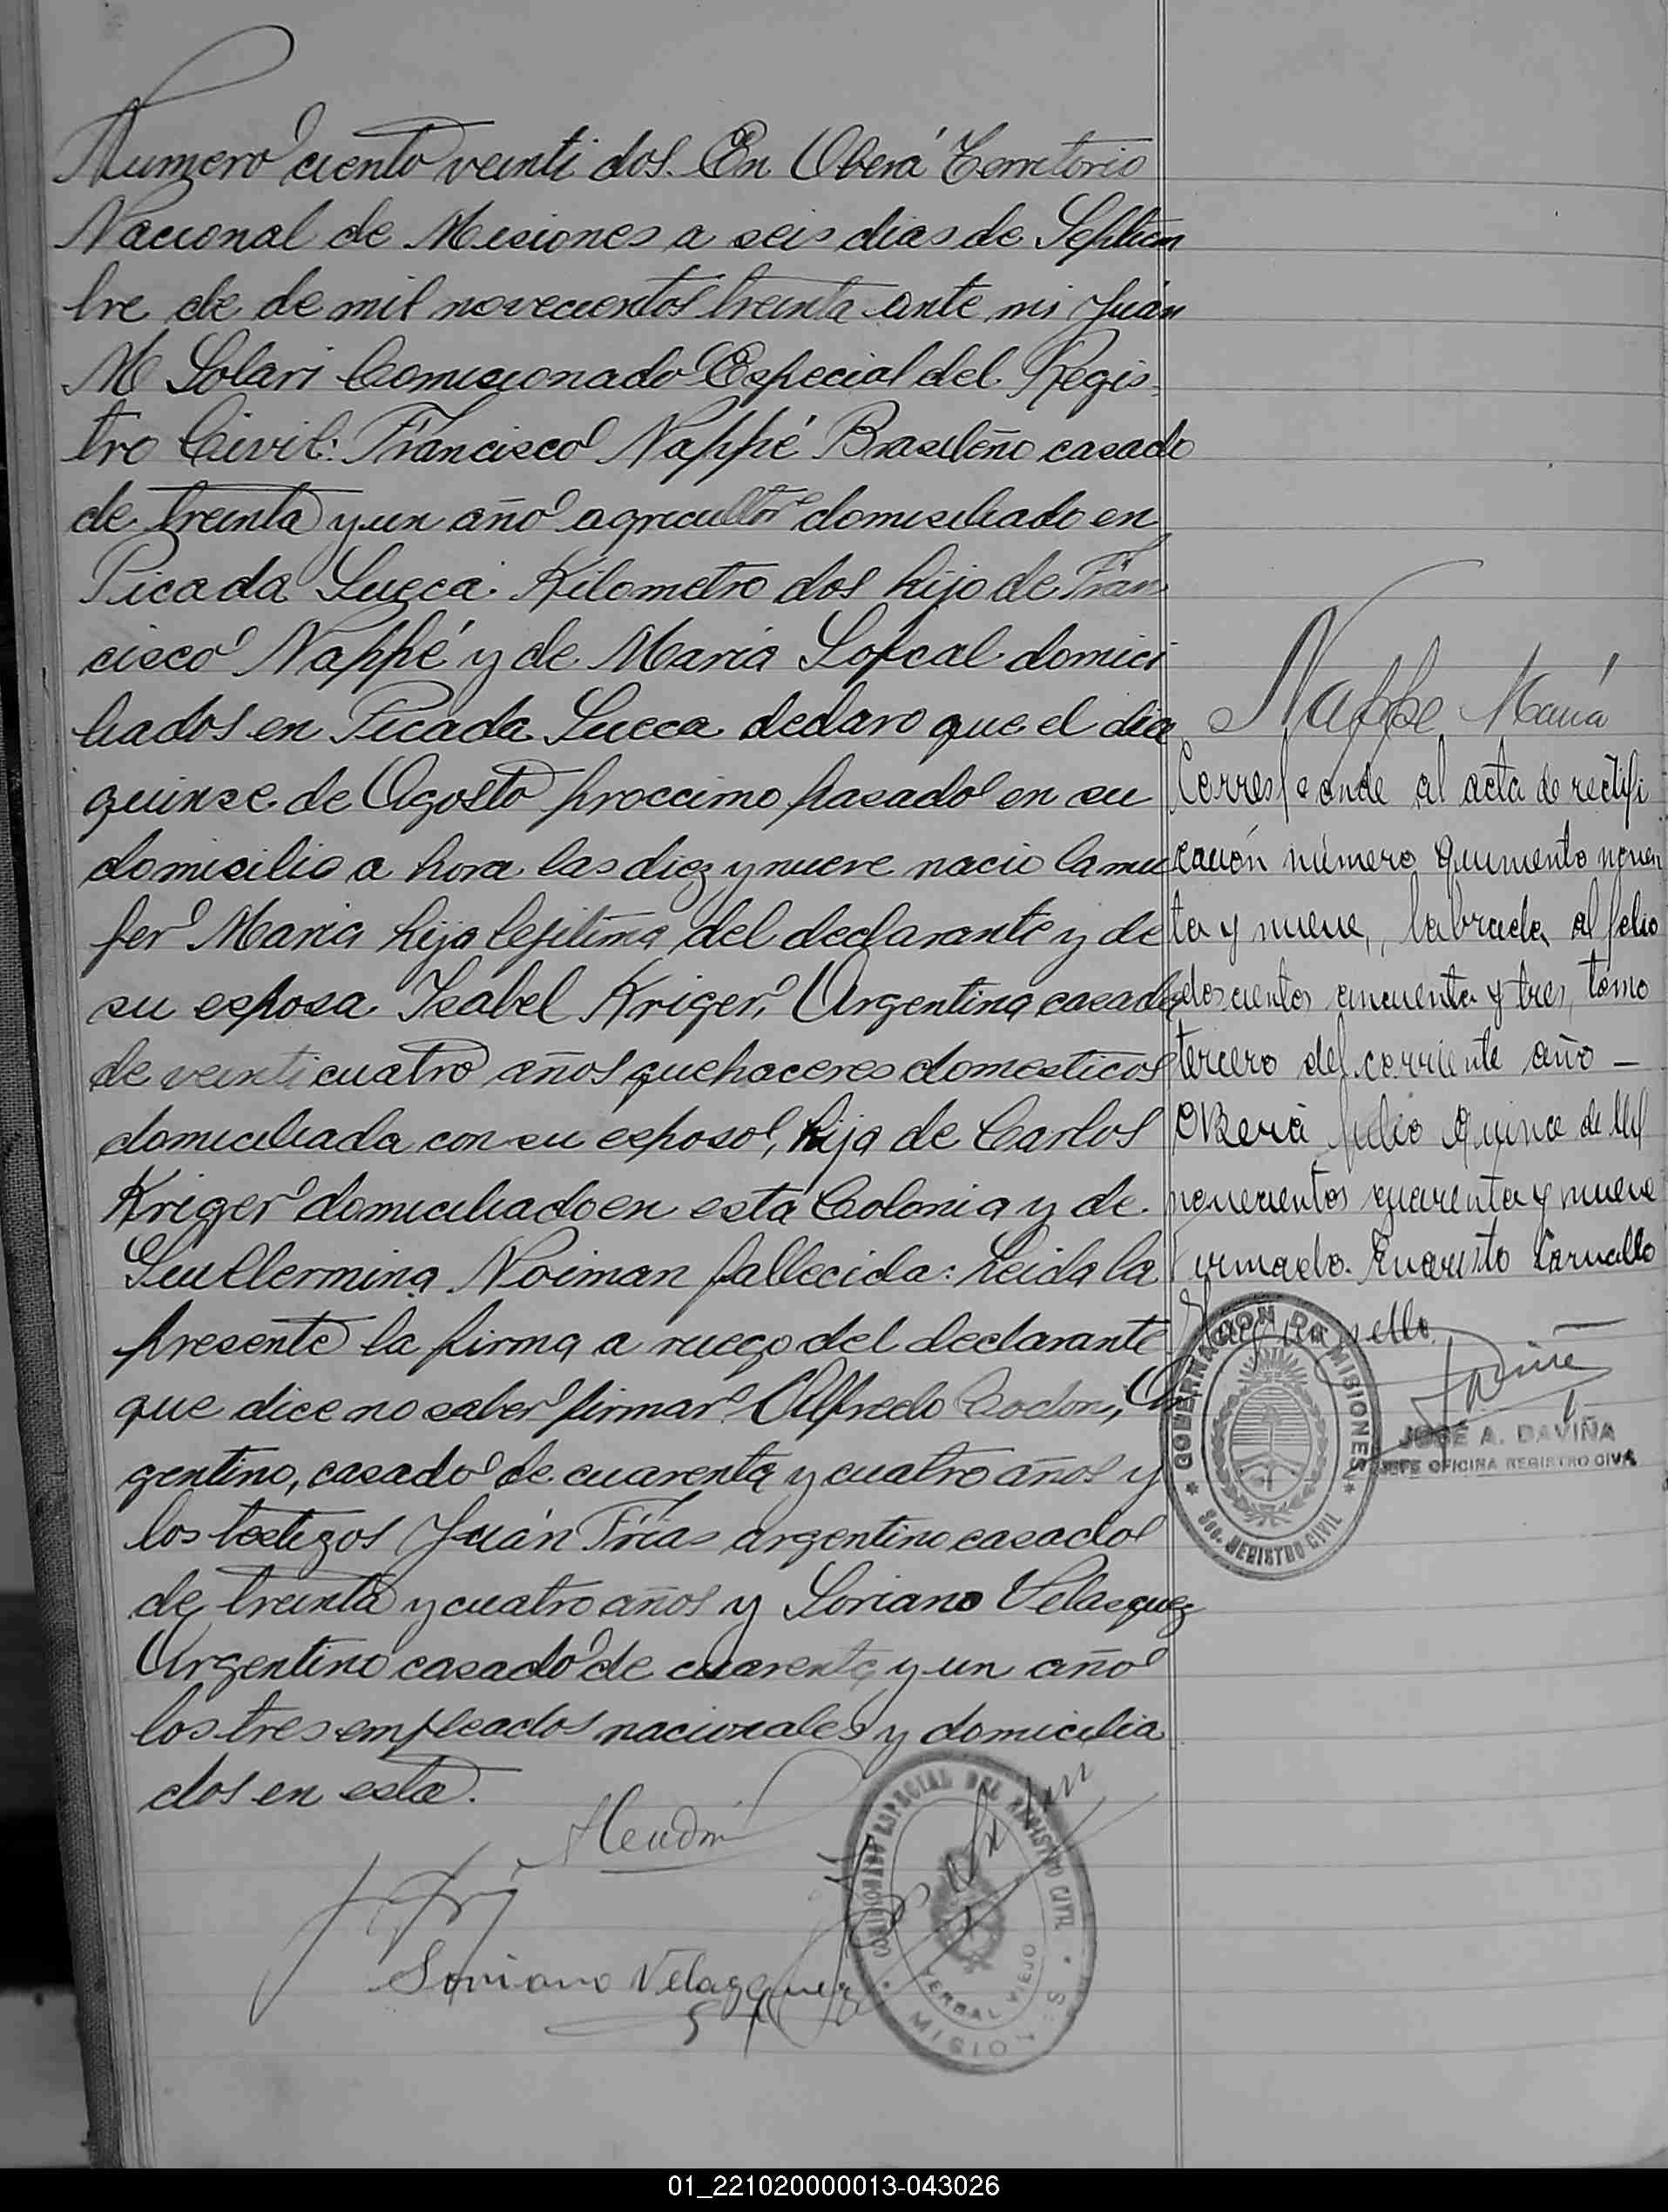 Numero ciento veinti dos. En Oberá Territorio
Nacional de Misiones a seis dias de Septiem
bre de de mil novecientos treinta ante mi Juán
M Solari Comisionado Especial del Regis-
tro Civil: Francisco Nappé Brasileño casado
de treinta y un año agricultor domisiliado en
Picada Sueca. Kilometro dos hijo de Fran
cisco Nappé y de Maria Lofcal domici
liados en Picada Sueca declaro que el dia
quinse de Agosto proccimo pasado en su
domisilio a hora las diez y nueve nacio la mu
fer Maria hija lejitima del declarante y de
su esposa Isabel Kriger, Argentina casada
de veinticuatro años quehaceres domesticos
domiciliada con su esposo, hija de Carlos
Kriger domiciliado en esta Colonia y de
Guillermina Noiman fallecida: Leida la
presente la firma a ruego del declarante
que dice no saber firmar Alfredo Codon, Ar
gentino, casado de cuarenta y cuatro años y
los testigos Juán Frias argentino casado
de treinta y cuatro años y Soriano Velasquez
Argentino casado de cuarenta y un año
los tres empleados nacionales y domicilia
dos en esta.
Soriano Velazquez
COMISIONADO ESPECIAL DEL REGISTRO CIVIL
YERBAL VIEJO
MISIONES
Nappe María
Corresponde al acta de rectifi
cación número quiniento noven
ta y nueve, labrada al folio
doscientos cincuenta y tres, tomo
tercero del corriente año —
Oberá Julio quince de Mil
novecientos cuarenta y nueve
Firmado. Evaristo Carvallo
Hay un sello.
GOBERNACION DE MISIONES
Sec. REGISTRO CIVIL
JOSÉ A. DAVIÑA
JEFE OFICINA REGISTRO CIVIL
01_221020000013-043026